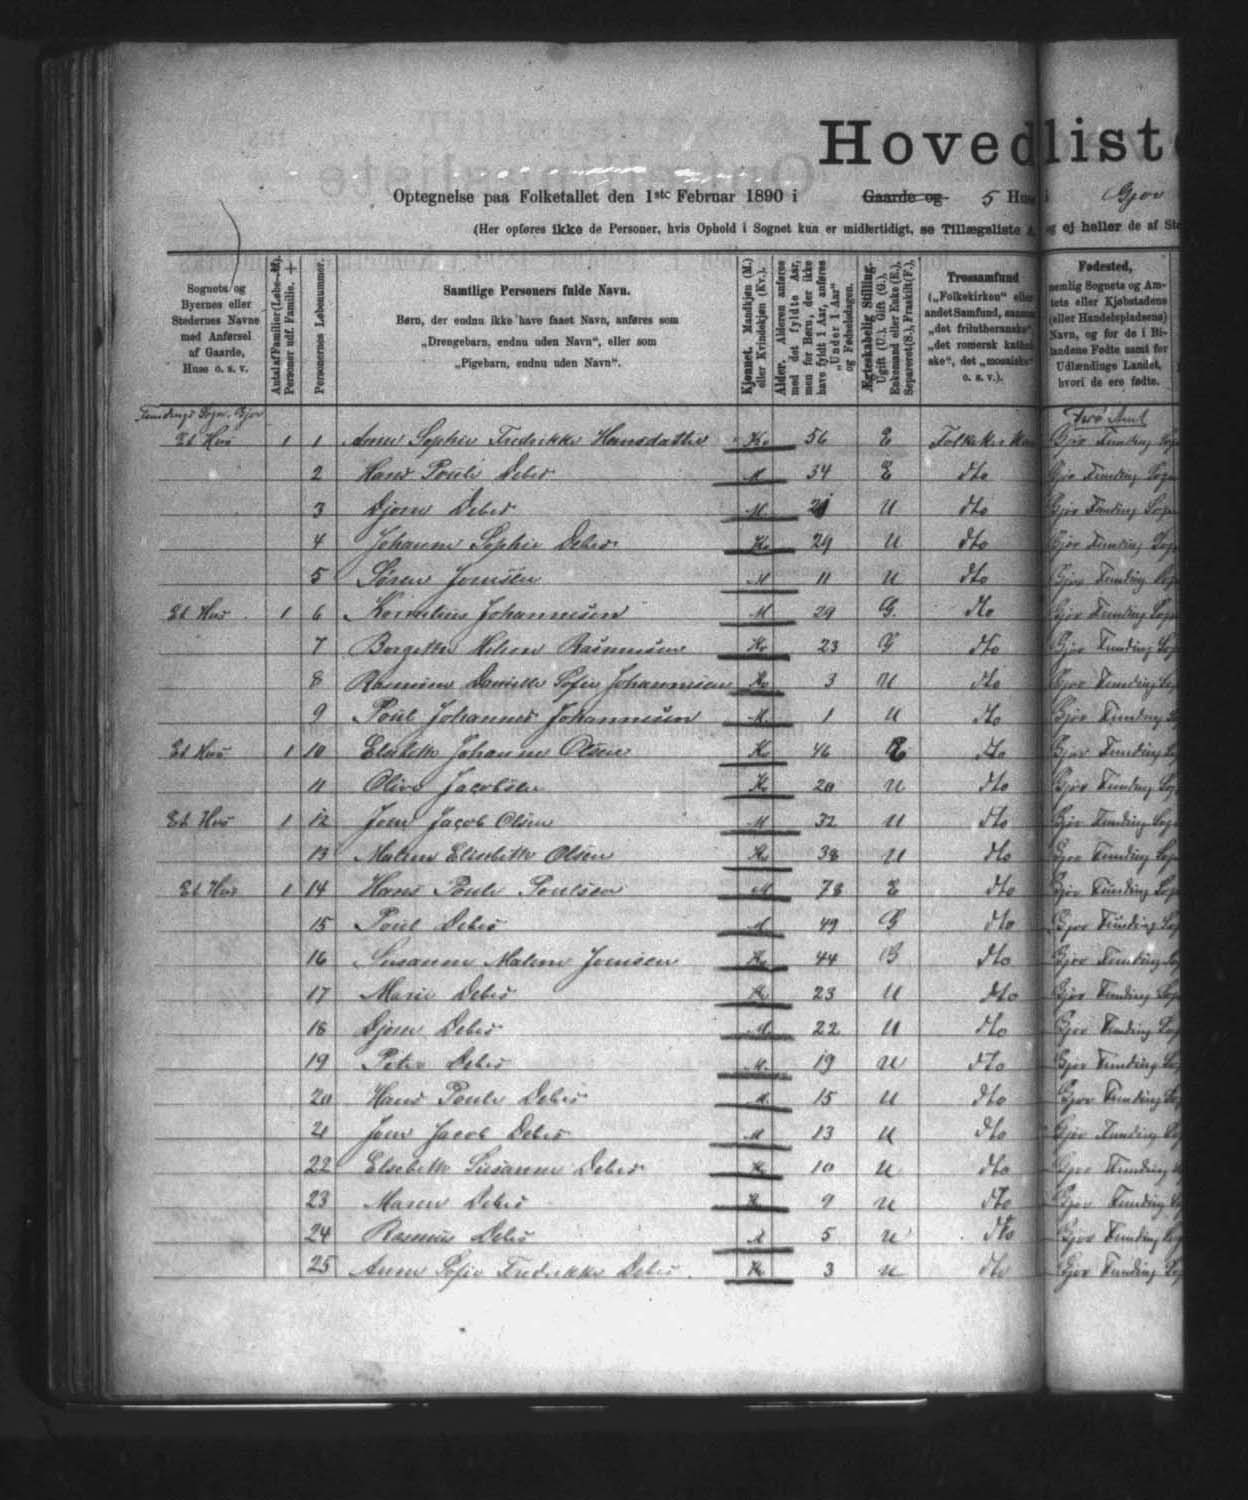 Hovedliste
Optegnelse paa Folketallet den 1ste Februar 1890 i Gaarde og 5 Huse i Gjov
(Her opføres ikke de Personer, hvis Ophold i Sognet kun er midlertidigt, se Tillægsliste A, og ej heller de af
Sognets og Byernes eller Stedernes Navne med Anførsel af Gaarde, Huse o. s. v.
Antal af Familier (Løbe-M). Personer udf. Familie. +
Personernes Løbenummer.
Samtlige Personers fulde Navn.
Børn, der endnu ikke have faaet Navn, anføres som
„Drengebarn, endnu uden Navn“, eller som
„Pigebarn, endnu uden Navn“.
Kjønnet. Mandkjøn (M.) eller Kvindekjøn (Kv.).
Alder. Alderen anføres med det fyldte Aar, men for Børn, der ikke have fyldt 1 Aar, anføres „Under 1 Aar“ og Fødselsdagen.
Ægteskabelig Stilling. Ugift (U.), Gift (G.), Enkemand eller Enke (E.), Separeret (S.), Fraskilt (F.).
Trossamfund („Folkekirken“ eller andet Samfund, saasom „det frilutheranske“, „det romersk katholske“, det „mosaiske“ o. s. v.).
Fødested, nemlig Sognets og Amtets eller Kjøbstadens (eller Handelspladsens) Navn, og for de i Bilandene Fødte samt for Udlændinge Landet, hvori de ere fødte.
Fundings Sogn. Gjov
Færø Amt
Et Hus 1 1 Anne Sophie Fredrikke Hansdatter Kv 56 E Folkekirken Gjov Funding Sogn
2 Hans Poule Debes M 34 E dto Gjov Funding Sogn
3 Djone Debes M 21 U dto Gjov Funding Sogn
4 Johanne Sophie Debes Kv 29 U dto Gjov Funding Sogn
5 Søren Joensen M 11 U dto Gjov Funding Sogn
Et Hus 1 6 Kornelius Johannesen M 29 G. dto Gjov Funding Sogn
7 Kv 23 G dto Gjov Funding Sogn
8 Danielle Sofie Johannesen Kv 3 U dto Gjov Funding Sogn
9 Poul Johannes Johannesen M. 1 U dto Gjov Funding
Et Hus 1 10 Elsebette Johanne Olsen Kv 46 E dto Gjov Funding Sogn
11 Olivo Jacobsen Kv 20 U dto Gjov Funding
Et Hus 1 12 Joen Jacob Olsen M 32 U dto Gjov Funding Sogn
13 Malene Elisebette Olsen Kv 38 U dto Gjov Funding Sogn
Et Hus 1 14 Hans Poule Poulsen M 78 E dto Gjov Funding Sogn
15 Poul Debes M 49 G dto Gjov Funding Sogn
16 Susanne Malene Joensen Kv 44 G dto Gjov Funding
17 Marie Debes Kv 23 U dto Gjov Funding Sogn
18 Djone Debes M 22 U dto Gjov Funding Sogn
19 Peter Debes M. 19 U dto Gjov Funding Sogn
20 Hans Poule Debes M. 15 U dto Gjov Funding Sogn
21 Joen Jacob Debes M 13 U dto Gjov Funding
22 Elsebette Susanne Debes Kv 10 U dto Gjov Funding
23 Maren Debes Kv 9 U dto Gjov Funding
24 Rasmus Debes M 5 U dto Gjov Funding Sogn
25 Anne Sofie Fredrikke Debes. Kv 3 U dto Gjov Funding Sogn